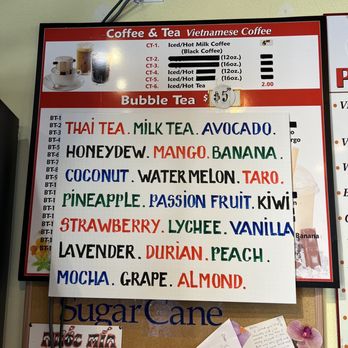 Coffee & Tea Vietnamese Coffee
CT-1. Iced/Hot Milk Coffee
(Black Coffee)
CT-2. (12oz.)
CT-3. (16oz.)
CT-4. (12oz.)
CT-5. (16oz.)
CT-6. Iced/Hot Tea 2.00
Bubble Tea $5
THAI TEA. MILK TEA. AVOCADO.
HONEYDEW. MANGO. BANANA.
COCONUT. WATERMELON. TARO.
PINEAPPLE. PASSION FRUIT. KIWI
STRAWBERRY. LYCHEE. VANILLA
LAVENDER. DURIAN. PEACH.
MOCHA. GRAPE. ALMOND.
Banana
Sugar Cane
NƯỚC MÍA